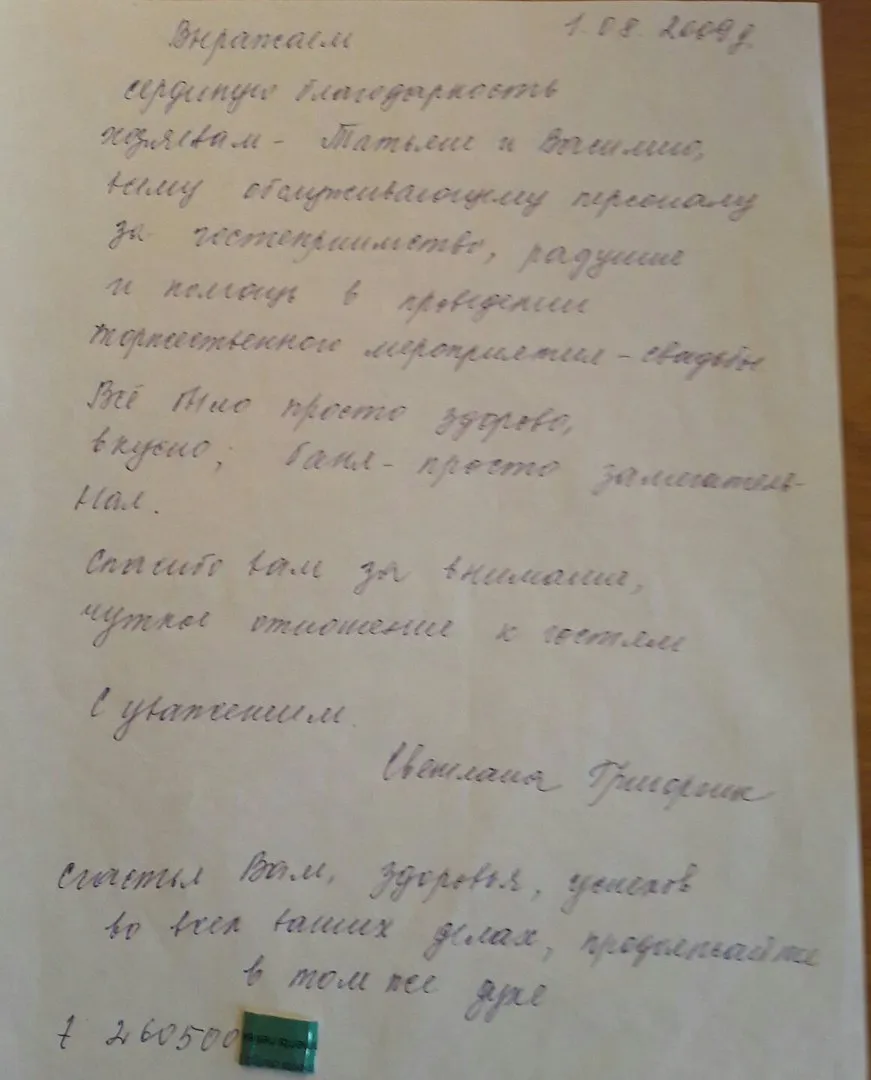 1.08.2009 г
Выражаем
сердечную благодарность
хозяевам - Татьяне и Василию,
всему обслуживающему персоналу
за гостеприимство, радушие
и помощь в проведении
торжественного мероприятия - свадьбы
Всё было просто здорово,
вкусно; баня - просто замечатель-
ная.
Спасибо вам за внимание,
чуткое отношение к гостям
С уважением.
Светлана
Счастья Вам, здоровья, успехов
во всех ваших делах, продолжайте
в том же духе
260500